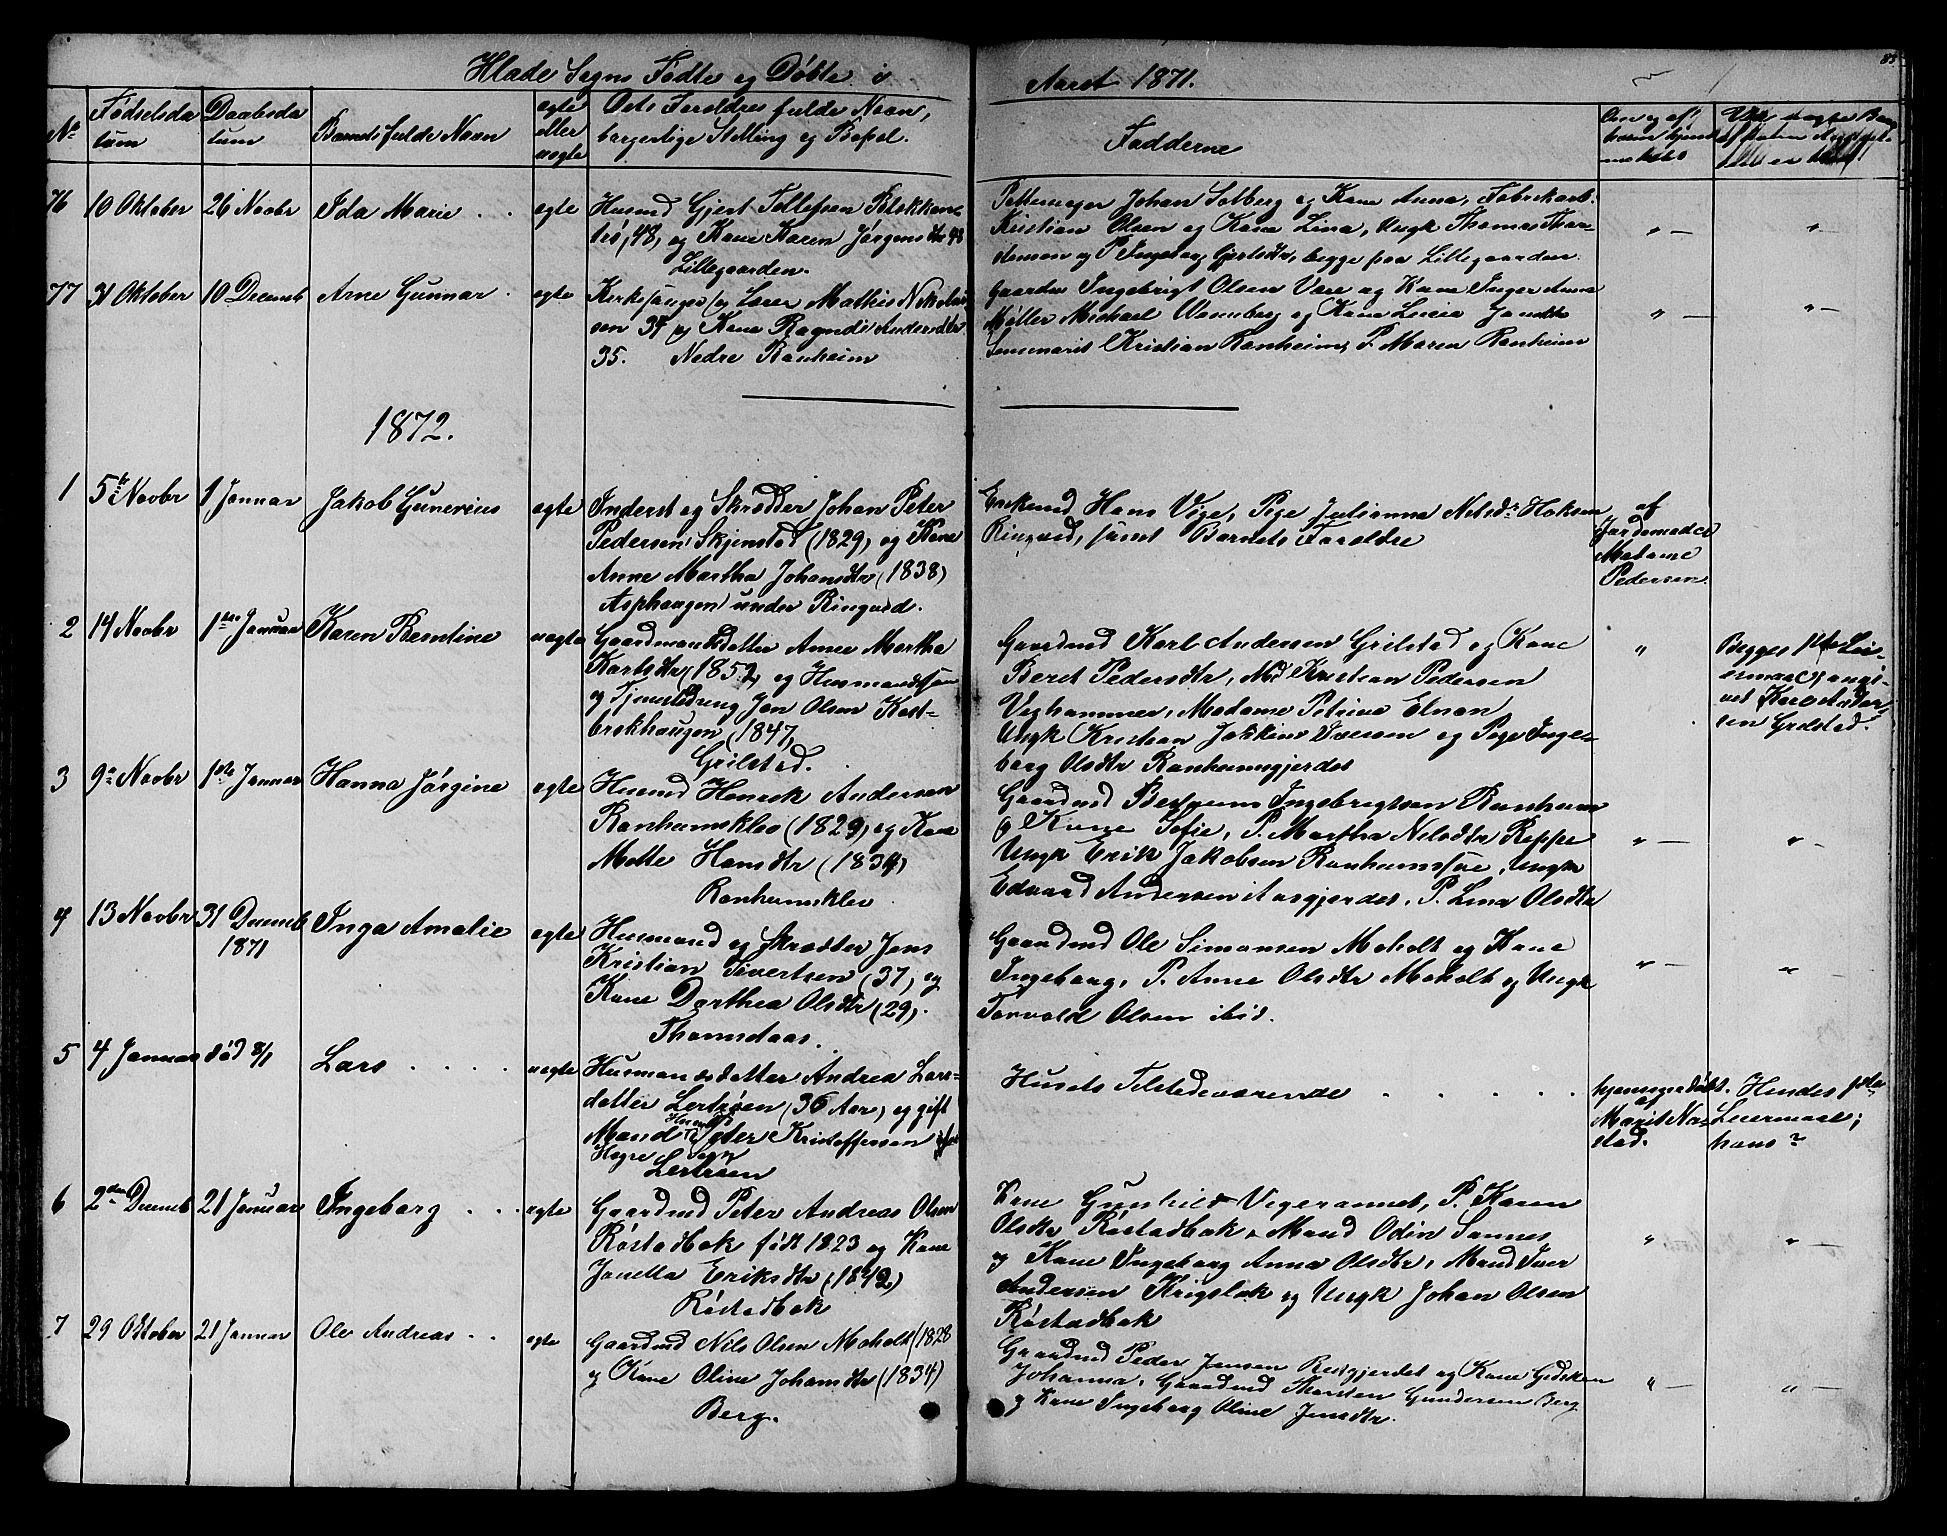 Hlade Sogns Fødte og Døbte i Aaret 1871.
No Fødselsda Daabsda Barnets fulde Navn ægte Dets Forældres fulde Navn, Fadderne
tum tum eller borgerlige Stilling og Bopæl.
uægte
76 10 Oktober 26 Novbr Ida Marie . . ægte Husmd Gjert Tollefsen
48, og Kone Karen Jørgensdtr 48
Lillegaarden.
Pottemager Johan Solberg og Kone Anna, Fabrikarb.
Kristian Olsen og Kone Lina, Ungk Thomas Thor-
stensen og P. Ingeborg Gjertsdtr, begge paa Lillegaarden.
" — "
77 31 Oktober 10 Decemb Arne Gunnar . ægte Kirkesanger og Lærer Mathis Nikolai
sen 37 og Kone Ragndi Andersdtr
35. Nedre Ranheim
Gaardm Ingebrigt Olsen Være og Kone Inger Anna
Møller Michael Wanneberg og Kone Lucia
Seminarist Kristian Ranheim, P. Maren Ranheim
" — " —
1872.
1 5te Novbr 1 Januar Jakob Gunerius ægte Inderst og Skrædder Johan Peter
Pedersen Skjenstad (1829) og Kone
Anne Martha Johansdtr (1838)
Asphaugen under Ringved.
Enkemd Hans Vige, Pige Julianna Nelsdr
Ringved, samt Barnets Forældre
af
Jordemoder
Madame
Pedersen
2 14 Novbr 1ste Januar Karen Berntine uægte Gaardmandsdatter Anne Martha
Karlsdtr (1852) og Husmandssøn
og Tjenestedreng Jon Olsen Kast-
brekhaugen (1847,
Grilstad.
Gaardmd Karl Andersen Grilstad og Kone
Beret Pedersdtr, Md Kristian Pedersen
Veghammer, Madame Petrine Elnan
Ungk Kristian Iversen og Pige Inge-
borg Olsdtr Ranheimsgjerdet
" Begges 1ste Lei-
ermaal, angi-
vet Karl Ander-
sen Grilstad.
3 9de Novbr 1ste Januar Hanna Jørgine ægte Husmd Henrik Andersen
Ranheimskleo (1829) og Kone
Mette Hansdtr (1834)
Ranheimsklev
Gaardmd Ingebrigtsen Ranheim
og Kone Sofie, P. Martha Nelsdtr Reppe
Ungk Erik Jakobsen Ranheims Ungk
Edvard Andersen P. Lina Olsdtr
" — " -
4 13 Novbr 31 Decemb Inga Amalie ægte Husmand og Skrædder Jens
1871 Kristian Sivertsen (37) og
Kone Dorthea Olsdtr (29).
Gaardmd Ole Simonsen Moholt og Kone
Ingeborg, P. Anne Olsdtr Moholt og Ungk
Torvald Olsen ibid.
" — " —
5 4 Januar død 8/1 Lars . . . . uægte Husmandsdatter Andrea Lars-
datter Lertrøen (36 Aar) og gift
Mand Peter Kristoffersen
Lertrøen
Husets Tilstedeværende . . . .
hjemmedøbt.
af
Marit Na-
stad.
Hendes 1ste
Leiermaal;
hans ?
6 2den Decemb 21 Januar Ingeborg . . . ægte Gaardmd Peter Andreas Olsen
Røstadbak født 1823 og Kone
Janetta Eriksdtr (1842)
Røstadbak
Kone Gunhild Vegerannet, P. Karen
Olsdtr Røstadbak, Mand Odin Sannes
og Kone Ingeborg Anna Olsdtr, Mand Iver
Andersen Krigslok og Ungk Johan Olsen
Røstadbak
" " —
7 29 Oktober 21 Januar Ole Andreas . . ægte Gaardmd Nils Olsen Moholt (1828
og Kone Oline Johansdtr (1834)
Berg.
Gaardmd Peder Jensen og Kone
Johanna, Gaardmd Thorsten Gundersen Berg
og Kone Ingeborg Oline Jensdtr.
" — " —